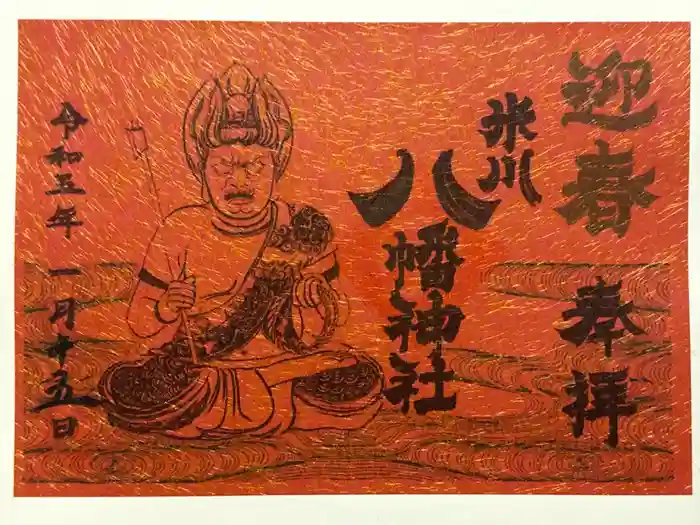 迎春
奉拝
氷川
八幡神社
令和五年一月十五日